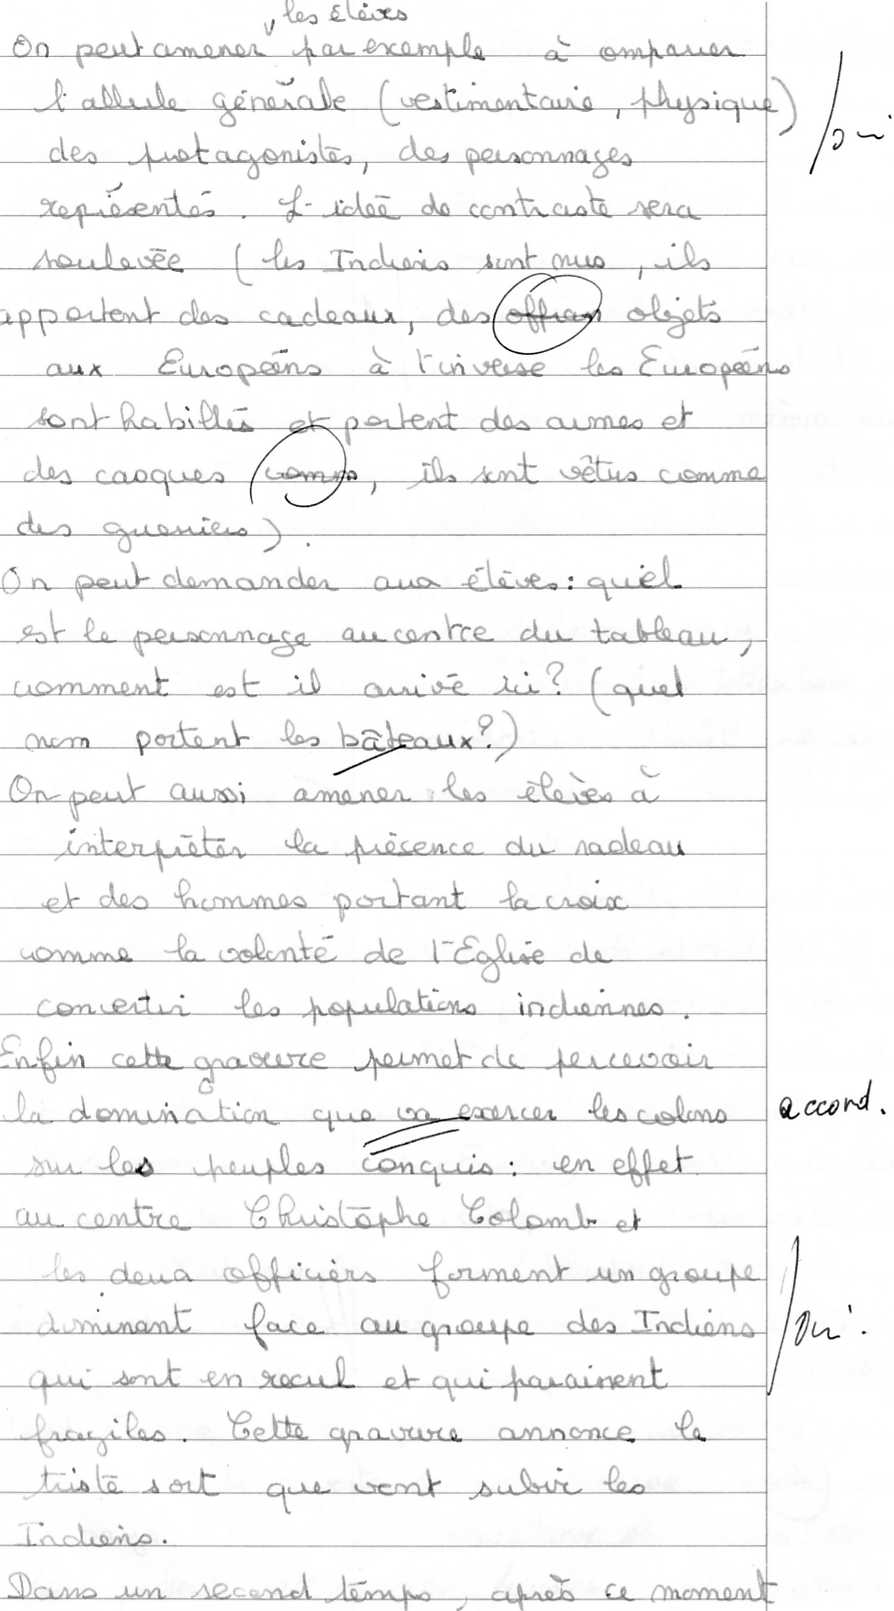 les élèves
On peut amener par exemple à ompauer
l'allule générale (vestimentaire, physique) oui
des protagonistes, des personnages
représentés. L'idée de contraste sera
soulevée (les Indiens sont nus, ils
apportent des cadeaux, des offran objets
aux Européens à l'inverse les Européens
sont habillés et portent des armes et
des casques comme, ils sont vêtus comme
des guerriers).
On peut demander aux élèves : quel
est le personnage au centre du tableau,
comment est il arrivé ici? (quel
nom portent les bâteaux?)
On peut aussi amener les élèves à
interpréter la présence du radeau
et des hommes portant la croix
comme la volonté de l'Eglise de
convertir les populations indiennes.
Enfin cette gravure permet de percevoir
la domination que va exercer les colons accord.
sur les peuples conquis : en effet
au centre Christophe Colomb et
les deux officiers forment un groupe
dominant face au groupe des Indiens oui.
qui sont en recul et qui paraissent
fragiles. Cette gravure annonce le
triste sort que vont subir les
Indiens.
Dans un second temps, après ce moment